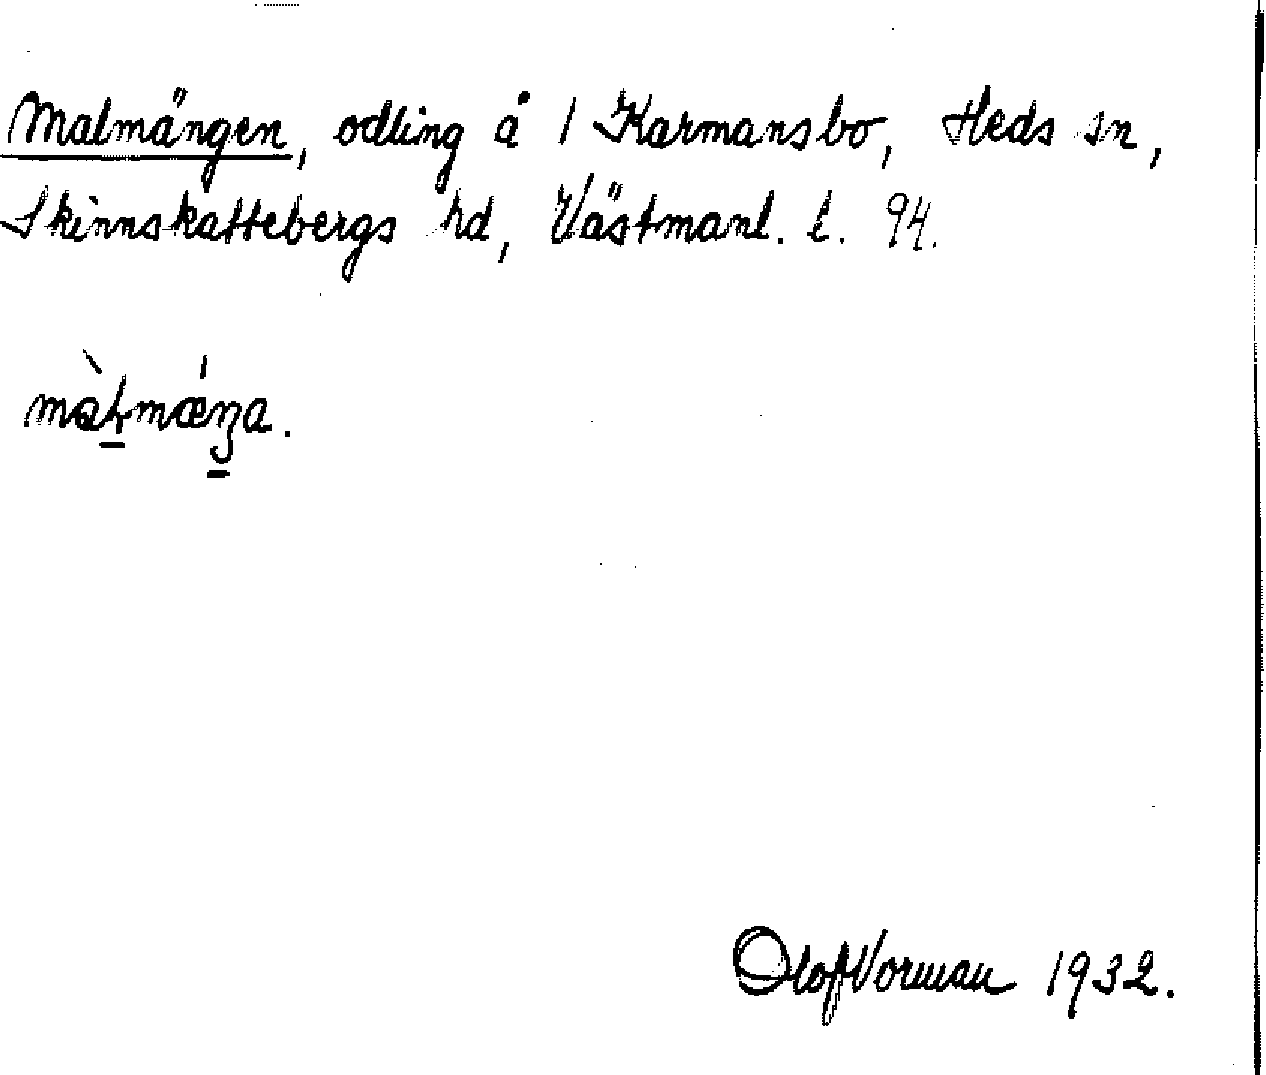 Malmängen, odling å 1 Karmansbo, Heds sn,
Skinnskattebergs hd, Västmanl. l. 94.
màłmǽŋa.
Olof Vorman 1932.